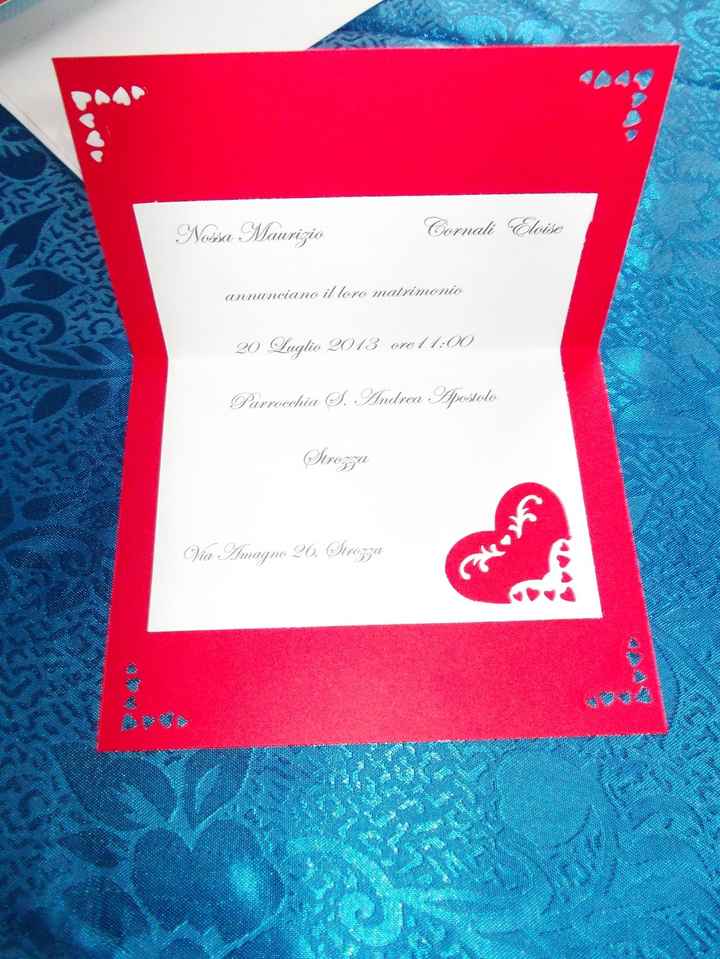 Nossa Maurizio Cornali Eloise
annunciano il loro matrimonio
20 Luglio 2013 ore 11:00
Parrocchia S. Andrea Apostolo
Strozza
Via Amagno 26, Strozza